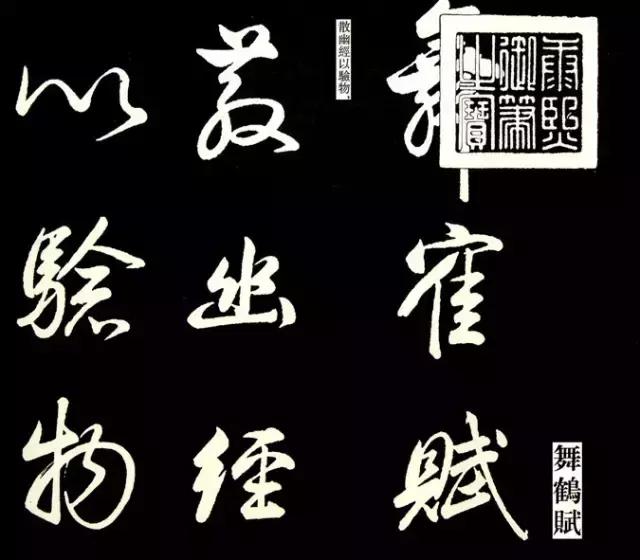 康熙
御筆
之寶
舞鶴賦
舞寉賦
散幽經以驗物、
散幽經
以驗物